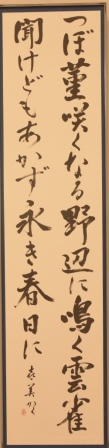 つぼ菫咲くなる野辺に鳴く雲雀
聞けどもあかず永き春日に